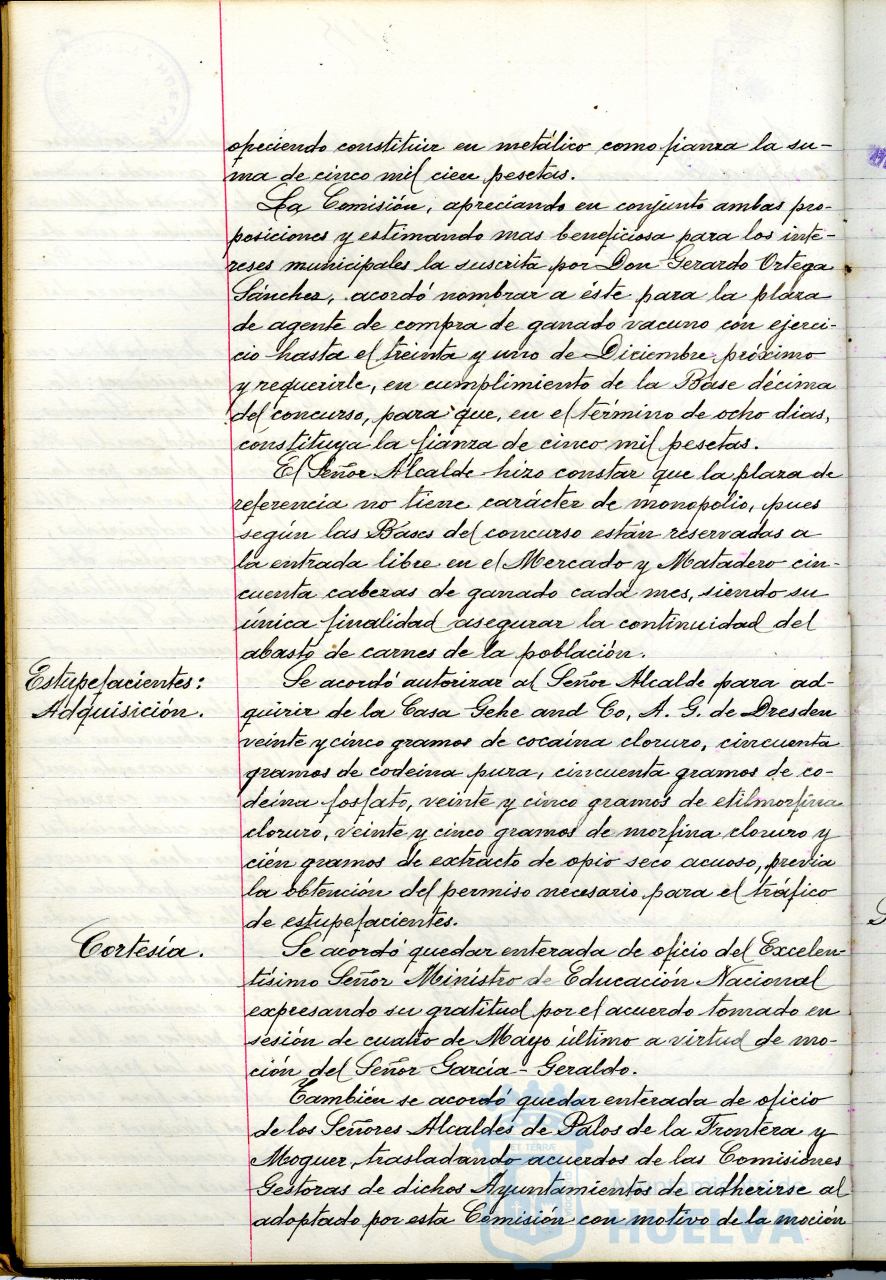 ofreciendo constituir en metálico como fianza la su-
ma de cinco mil cien pesetas.
La Comisión, apreciando en conjunto ambas pro-
posiciones y estimando mas beneficiosa para los inte-
reses municipales la suscrita por Don Gerardo Ortega
Sánchez, acordó nombrar a éste para la plaza
de agente de compra de ganado vacuno con ejerci-
cio hasta el treinta y uno de Diciembre próximo
y requerirle, en cumplimiento de la Báse décima
del concurso, para que, en el término de ocho dias,
constituya la fianza de cinco mil pesetas.
El Señor Alcalde hizo constar que la plaza de
referencia no tiene carácter de monopolio, pues
según las Bases del concurso están reservadas a
la entrada libre en el Mercado y Matadero cin-
cuenta cabezas de ganado cada mes, siendo su
única finalidad asegurar la continuidad del
abasto de carnes de la población.
Estupefacientes:
Adquisición.
Se acordó autorizar al Señor Alcalde para ad-
quirir de la Casa Gehe and Co, A. G. de Dresden
veinte y cinco gramos de cocaína cloruro, cincuenta
gramos de codeína pura, cincuenta gramos de co-
deína fosfato, veinte y cinco gramos de etilmorfina
cloruro, veinte y cinco gramos de morfina cloruro y
cién gramos de extracto de opio seco acuoso, previa
la obtención del permiso necesario para el tráfico
de estupefacientes.
Cortesía.
Se acordó quedar enterada de oficio del Excelen-
tísimo Señor Ministro de Educación Nacional
expresando su gratitud por el acuerdo tomado en
sesión de cuatro de Mayo último a virtud de mo-
ción del Señor García-Geraldo.
También se acordó quedar enterada de oficio
de los Señores Alcaldes de Palos de la Frontera y
Moguer, trasladando acuerdos de las Comisiones
Gestoras de dichos Ayuntamientos de adherirse al
adoptado por esta Comisión con motivo de la moción
Ayuntamiento de
HUELVA